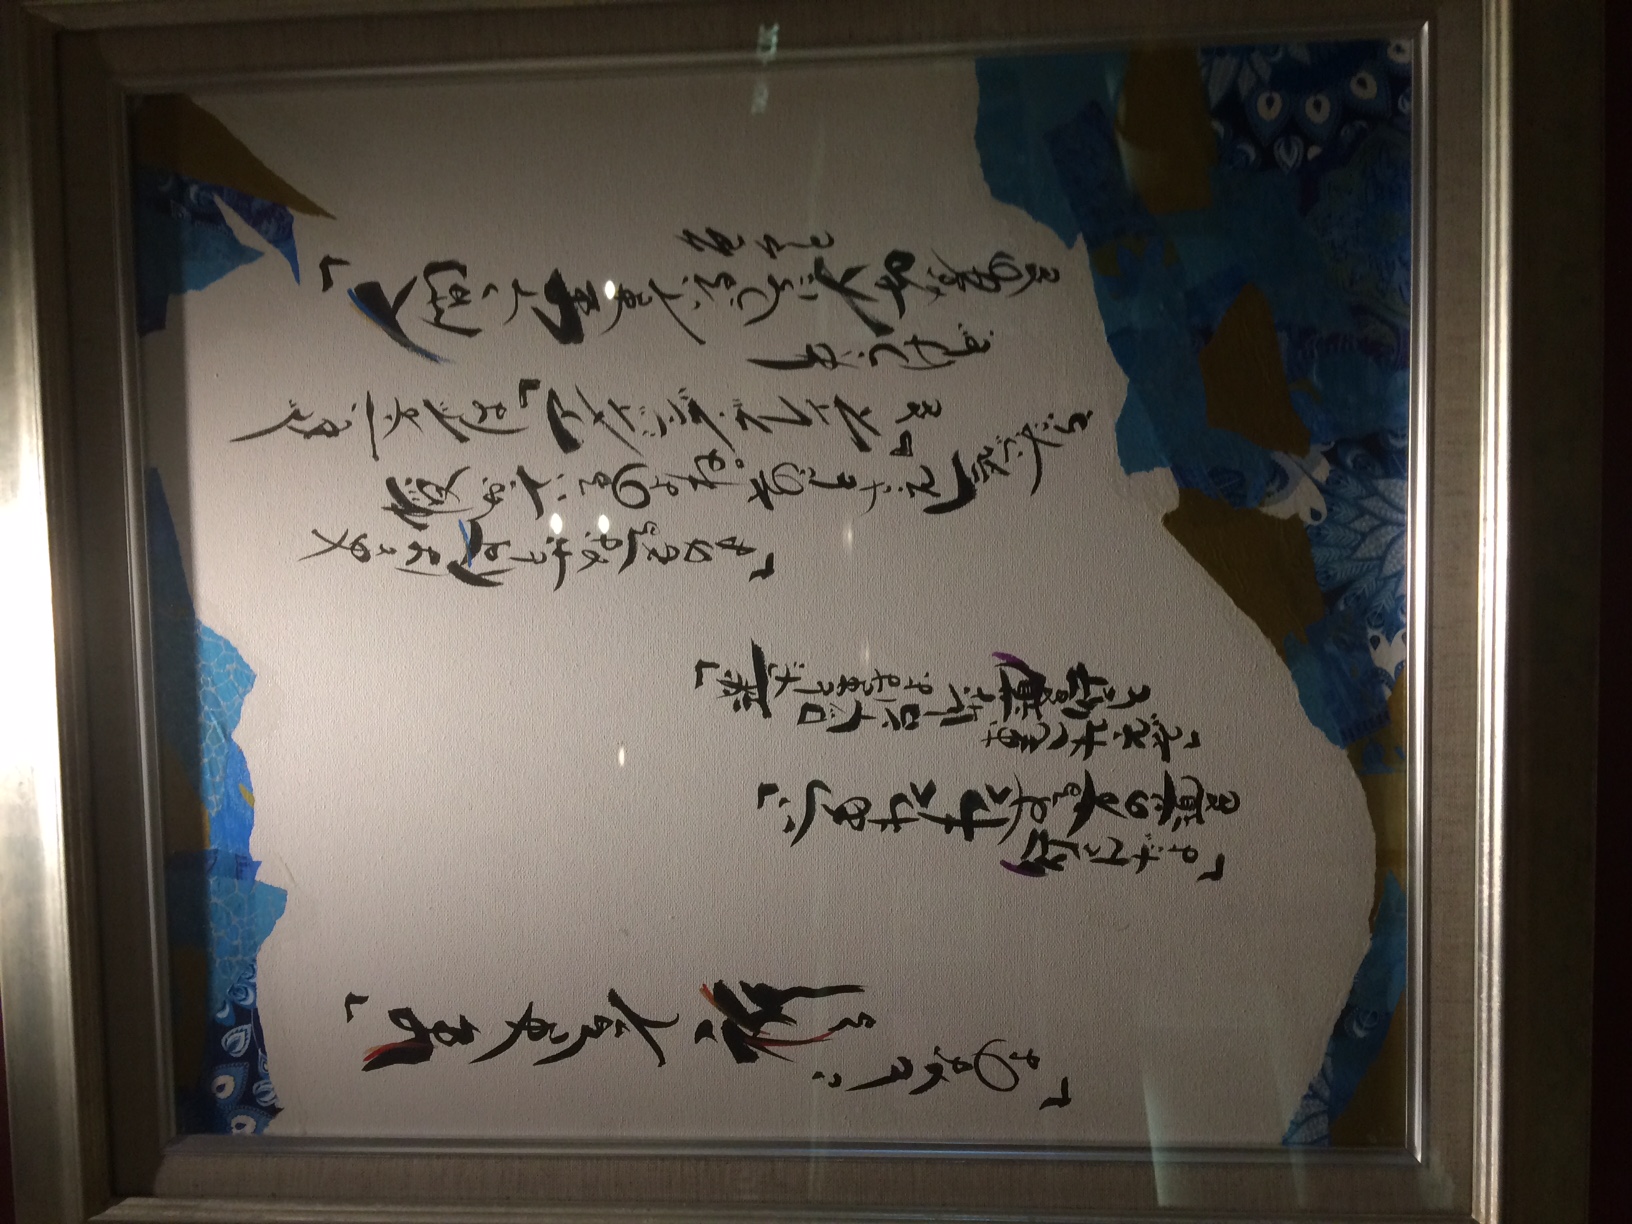 「人間って生きているうちに大切なものを
色々と
失うけど、
でも、一方では『アメイジング・グレイス』を
授かっているのよね。そのことさえ気づいたら
あとは何とかなるものよ」
「迷ったときはよ、
ロックンロールな道を行くと
おもしれえぞ」
「いつもわくわくする方の道を
行くんだよ」
「生きるって祈る
ことなのよ」